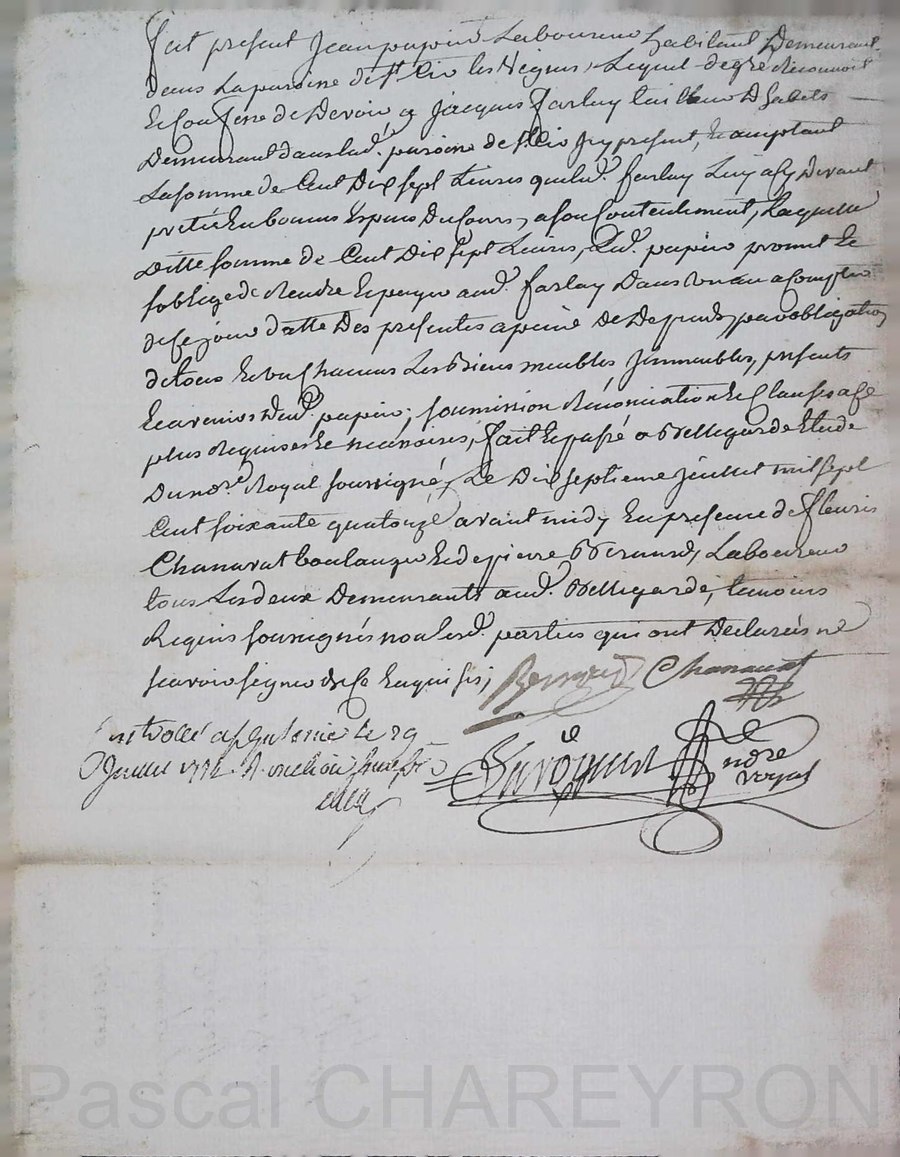 fut present Jean papier Laboureur habitant Demeurant
dans La paroisse de St Cir les Vignes, Lequel de gré Reconnoit
Et Confesse de Devoir a Jacques farlay tailleur D'habits
Demeurant dans lad. paroisse de St Cir Icy present, Et acceptant
La somme de Cent Dix sept Livres que led. farlay Luy a Cy Devant
pretée En bonnes Especes Du Cours, a son Contentement, Laquelle
ditte somme de Cent Dix sept Livres, Led. papier promet Et
s'oblige de Rendre Et payer aud. farlay Dans un an a Compter
de Ce jour d'atte Des presentes a peine De Depends, par obligation
de tous Et un Chacuns Les Biens meubles Immeubles, presents
Et avenirs dud. papier; soumission Renonciation Et Clauses a ce
plus Requises Et necessaires, fait Et passé a Bellegarde Etude
Du nore. Royal soussigné, Le Dix septieme Juillet mil sept
Cent soixante quatorze avant midy En presence de fleuris
Chanavat boulanger Et de pierre Bernard, Laboureur
tous Les deux Demeurants aud. Bellegarde, temoins
Requis soussignés non lesd. parties qui ont Declarées ne
scavoir signer de Ce Enquises,
Bernard Chanavat
Controllé a le 29
Juillet 1774. R.
nore
royal
Pascal CHAREYRON